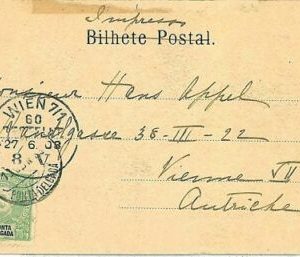 Impresso
Bilhete Postal.
Monsieur Hans Appel
gasse 38-III-22
Vienne VII
Autriche
WIEN 7/1
60
27 6 03
8 V
PONTA DELGADA
NTA
GADA